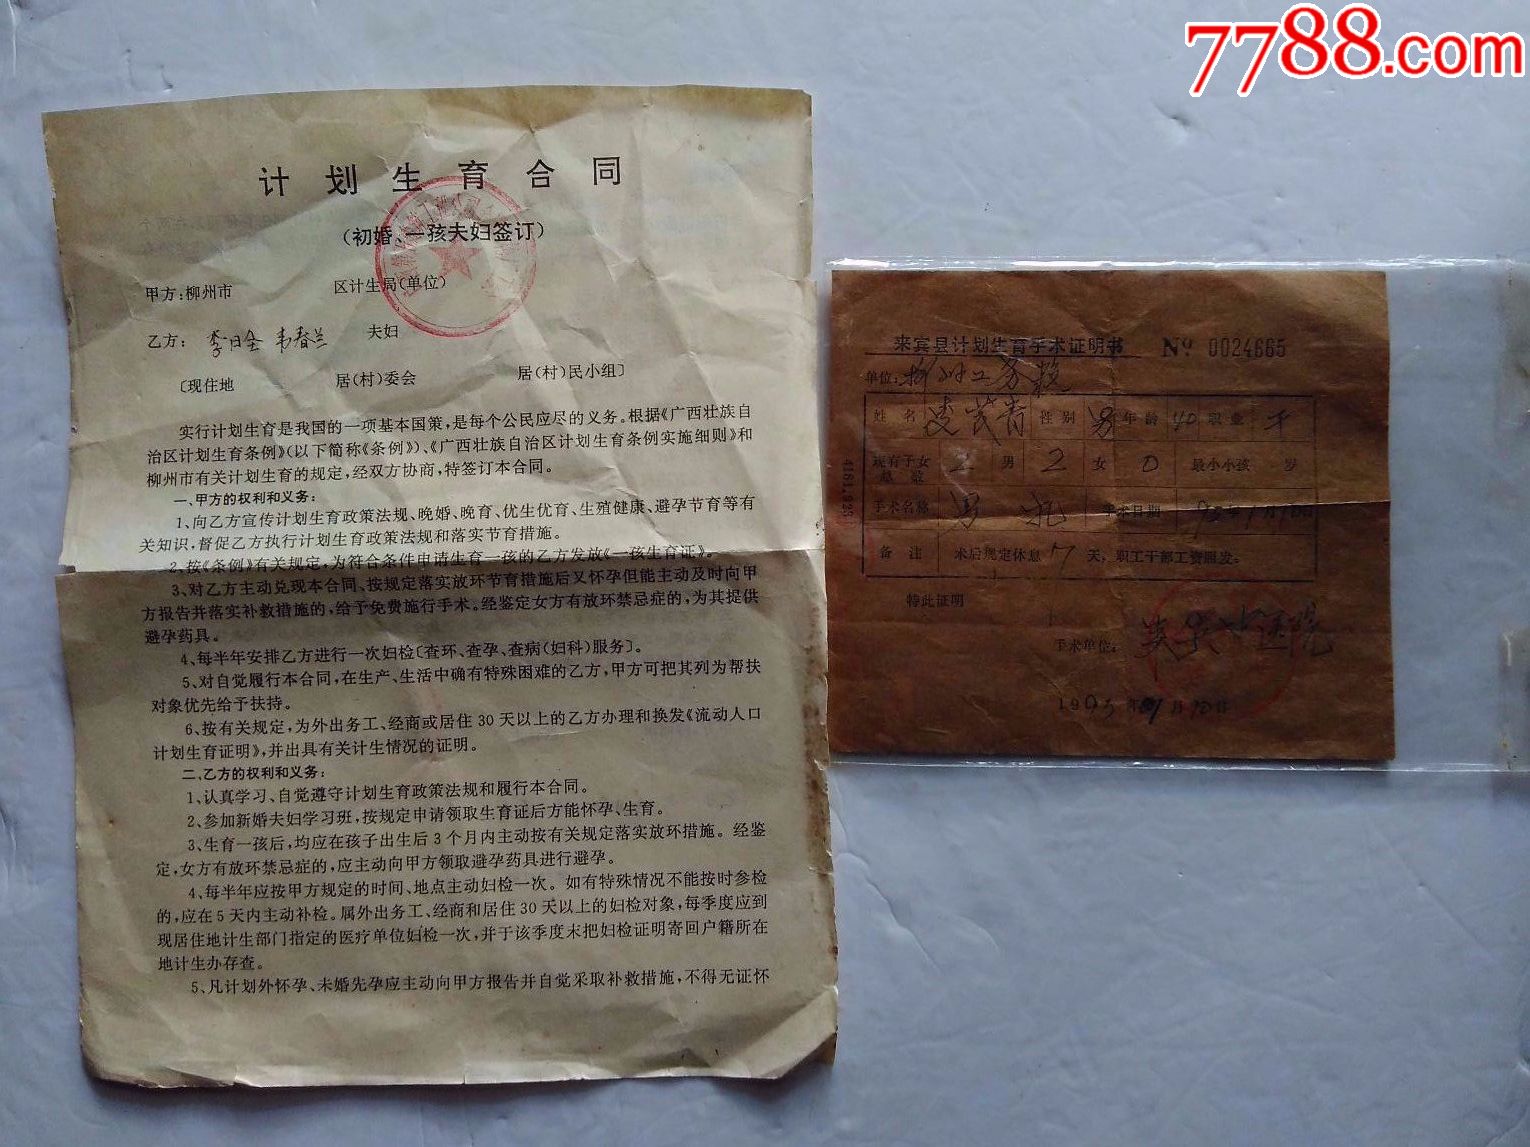 7788.com
计划生育合同
(初婚、一孩夫妇签订)
甲方:柳州市 区计生局(单位)
乙方: 李日全 韦春兰 夫妇
〔现住地 居(村)委会 居(村)民小组〕
实行计划生育是我国的一项基本国策,是每个公民应尽的义务。根据《广西壮族自
治区计划生育条例》(以下简称《条例》)、《广西壮族自治区计划生育条例实施细则》和
柳州市有关计划生育的规定,经双方协商,特签订本合同。
一、甲方的权利和义务:
1、向乙方宣传计划生育政策法规、晚婚、晚育、优生优育、生殖健康、避孕节育等有
关知识,督促乙方执行计划生育政策法规和落实节育措施。
2、按《条例》有关规定,为符合条件申请生育一孩的乙方发放《一孩生育证》。
3、对乙方主动兑现本合同、按规定落实放环节育措施后又怀孕但能主动及时向甲
方报告并落实补救措施的,给予免费施行手术。经鉴定女方有放环禁忌症的,为其提供
避孕药具。
4、每半年安排乙方进行一次妇检〔查环、查孕、查病(妇科)服务〕。
5、对自觉履行本合同,在生产、生活中确有特殊困难的乙方,甲方可把其列为帮扶
对象优先给予扶持。
6、按有关规定,为外出务工、经商或居住30天以上的乙方办理和换发《流动人口
计划生育证明》,并出具有关计生情况的证明。
二、乙方的权利和义务:
1、认真学习、自觉遵守计划生育政策法规和履行本合同。
2、参加新婚夫妇学习班,按规定申请领取生育证后方能怀孕、生育。
3、生育一孩后,均应在孩子出生后3个月内主动按有关规定落实放环措施。经鉴
定,女方有放环禁忌症的,应主动向甲方领取避孕药具进行避孕。
4、每半年应按甲方规定的时间、地点主动妇检一次。如有特殊情况不能按时参检
的,应在5天内主动补检。属外出务工、经商和居住30天以上的妇检对象,每季度应到
现居住地计生部门指定的医疗单位妇检一次,并于该季度末把妇检证明寄回户籍所在
地计生办存查。
5、凡计划外怀孕、未婚先孕应主动向甲方报告并自觉采取补救措施,不得无证怀
来宾县计划生育手术证明书 No 0024665
单位: 柳州工务段
姓名 性别 男 年龄 40 职业 干
现有子女总数 2 男 2 女 0 最小小孩 岁
手术名称 男扎 手术日期
备注 术后规定休息 7 天,职工干部工资照发。
特此证明
手术单位: 医院
月10日